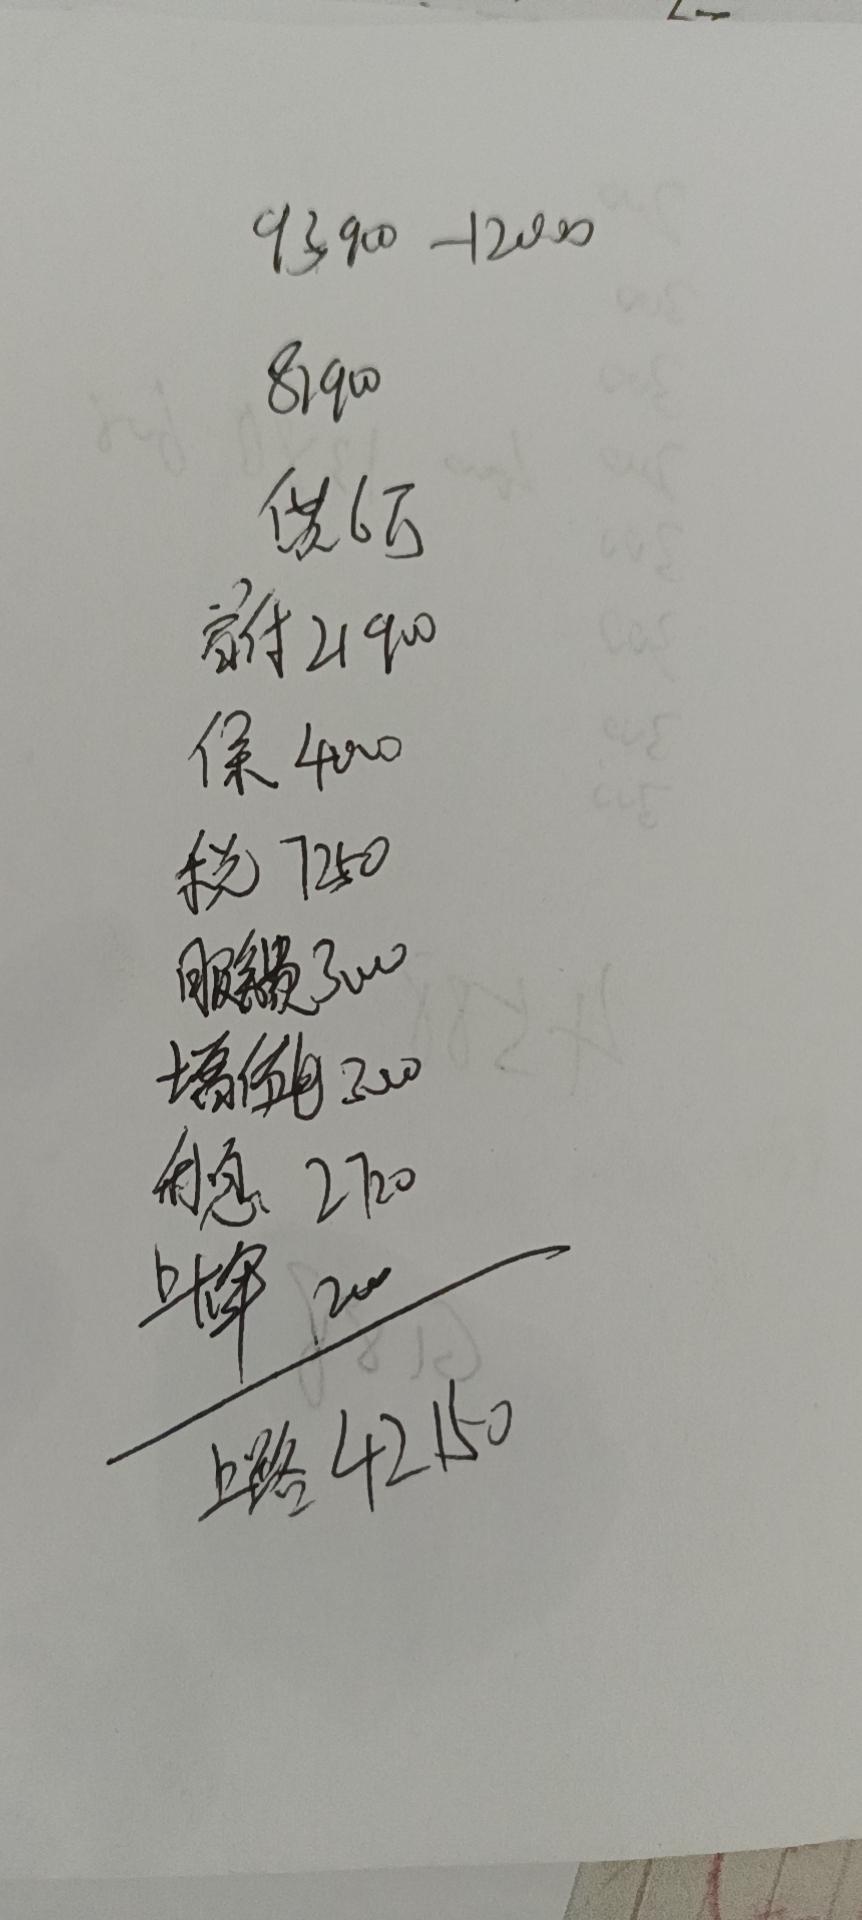 93900-12000
81900
供6万
首付21900
保4000
税7250
服务费3000
增值包3000
利息 2720
上牌 1200
上路42150